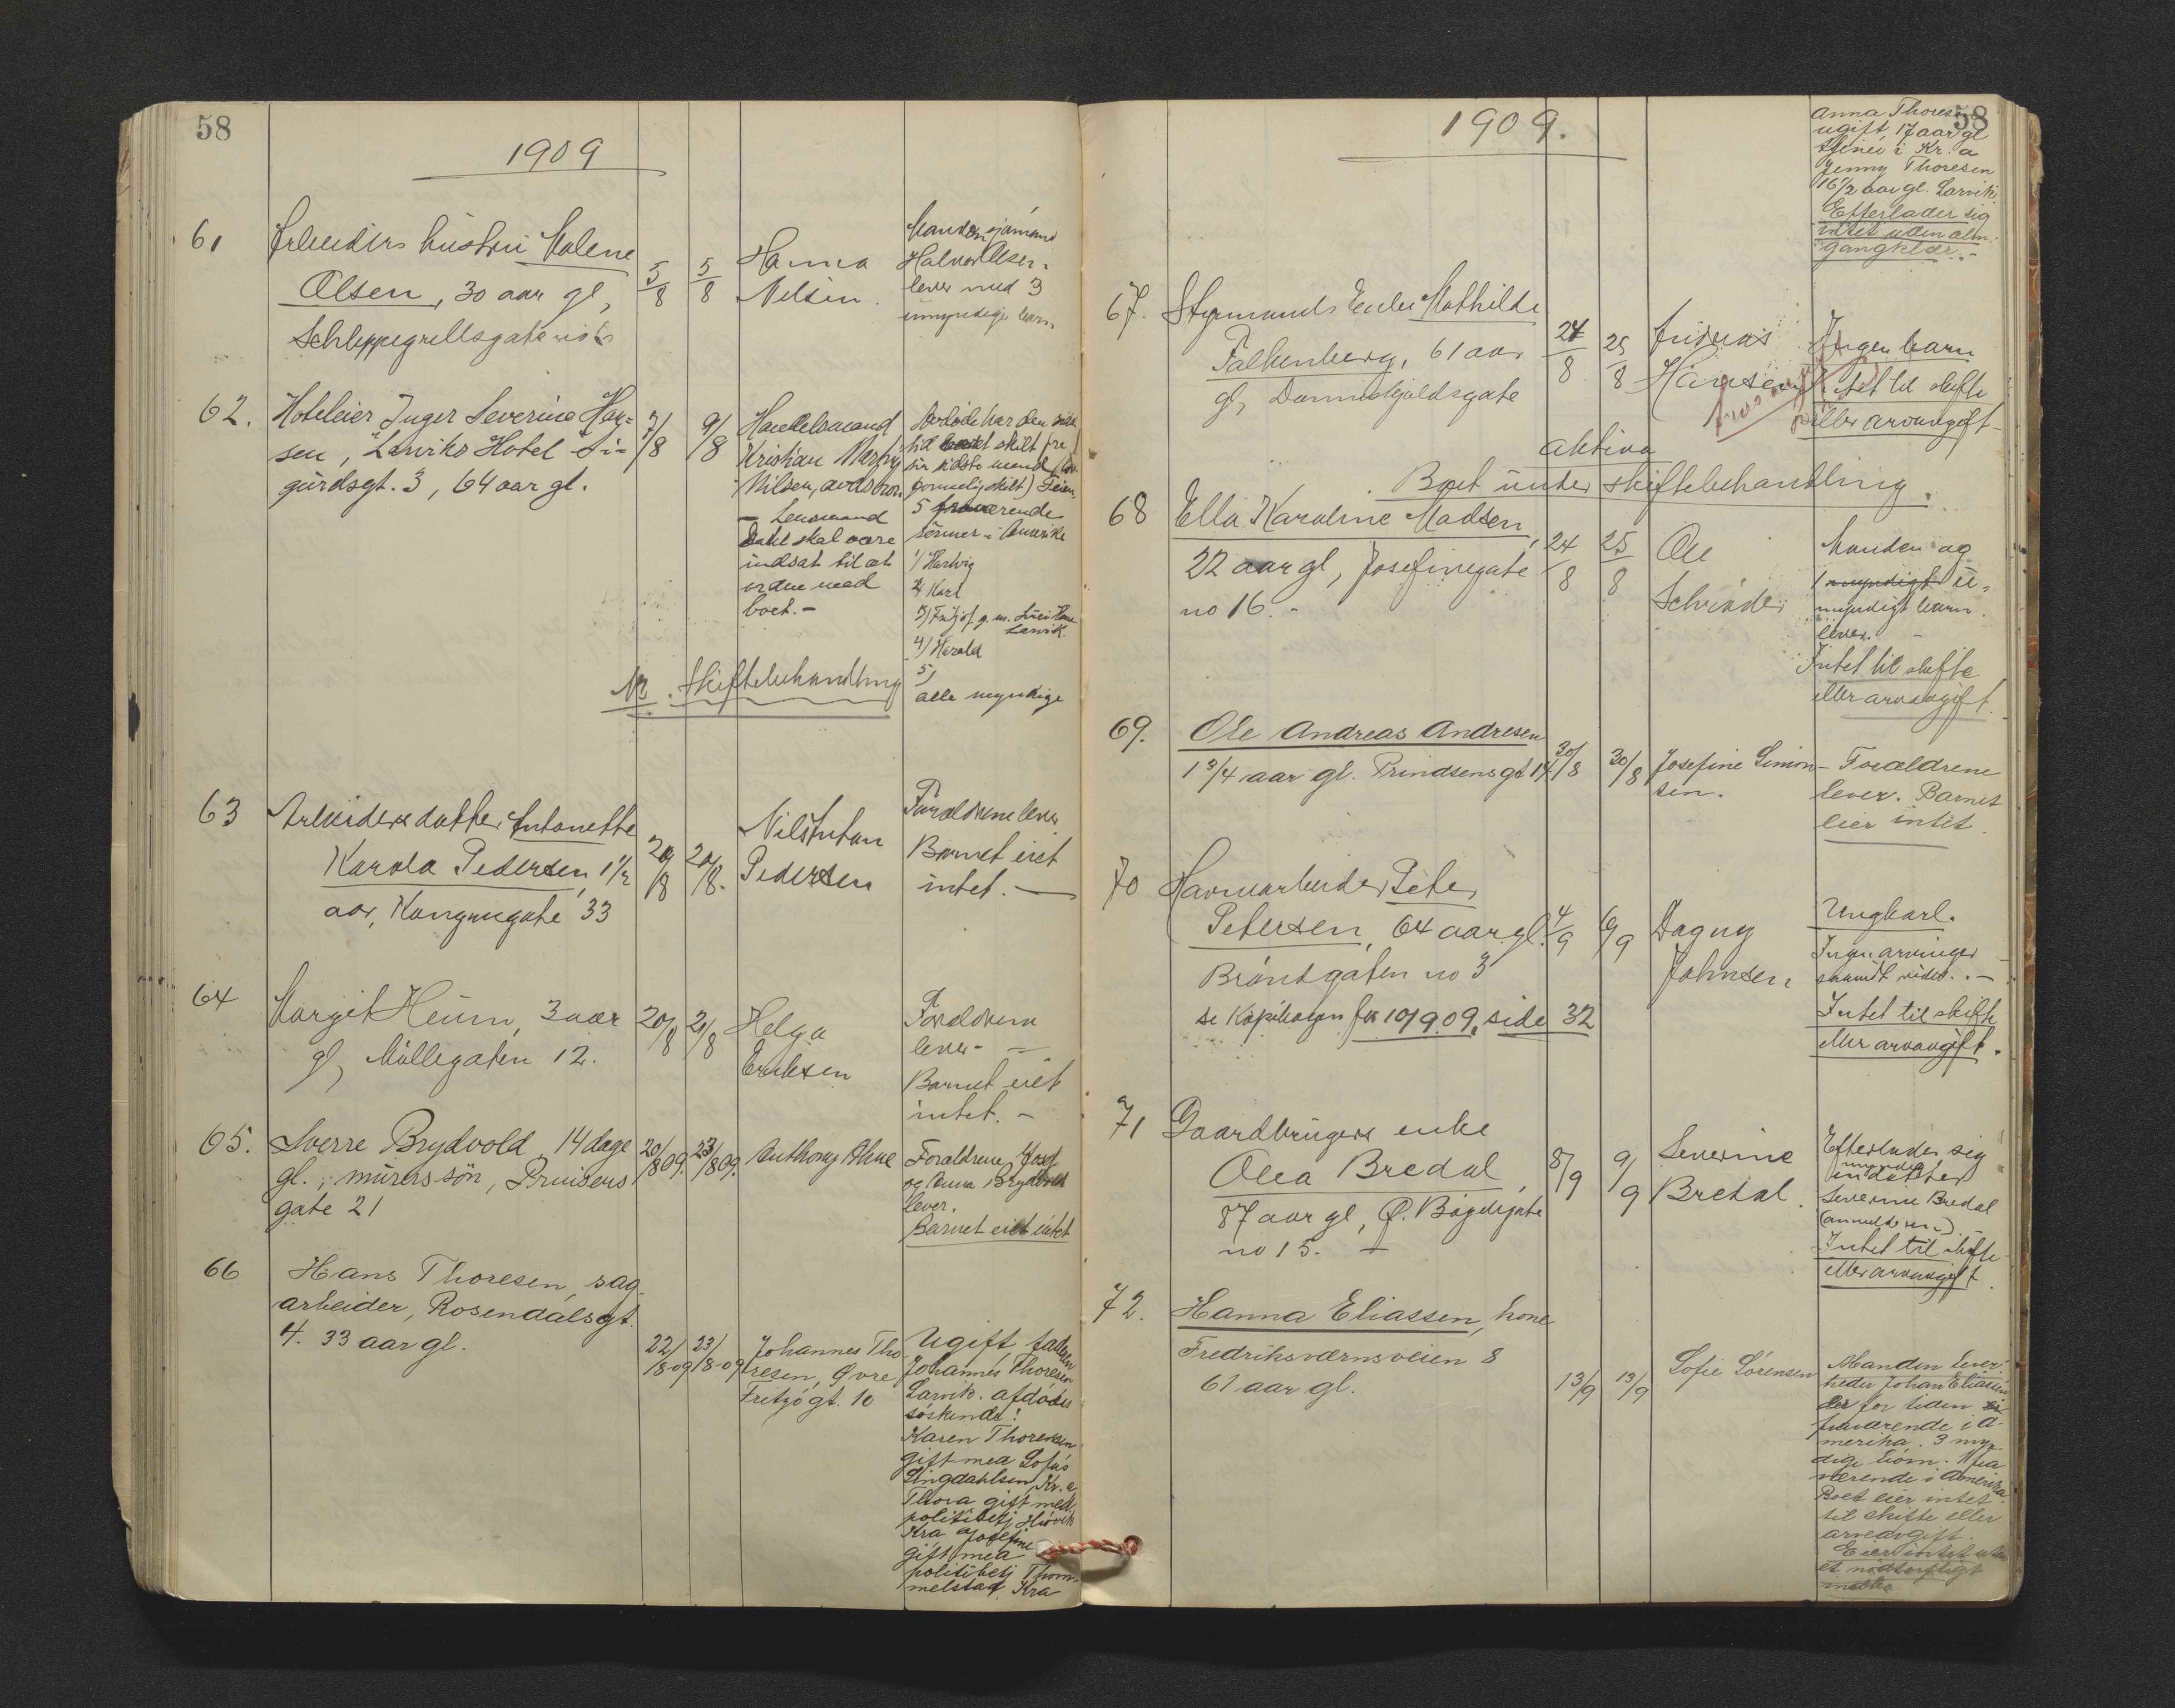 58
1909
61
Arbeiders hustru Malene
Olsen, 30 aar gl,
Schleppegrellsgate
5/8
5/8
Hanna
Nelsen.
Manden sjømand
Halvor Olsen
lever med 3
umyndige barn
62.
Hoteleier Inger Severine Han-
sen, Larviks Hotel Si-
gurdsgt. 3, 64 aar gl.
7/8
9/8
Handelsmand
Kristian
Nilsen, avds bror.
- Lensmand
Dahl skal være
indsat til at
ordne med
boet. -
Avdøde har den
tid skilt fra
sin sidste mand
formelig skilt)
5 fraværende
sønner i Amerika
1) Hartvig
2) Karl
3) Fritjof g. m.
Larvik.
4) Harald
5)
alle myndige
Skiftebehandling
63
Arbeiders datter Antonette
Karola Pedersen, 1½
aar, Kongensgate 33
20/8
20/8.
Nils Anton
Pedersen
Forældrene lever
Barnet eiet
intet. -
64
Margit Heum, 3 aar
gl, Møllegaten 12.
20/8
21/8
Helga
Eriksen
Forældrene
lever -
Barnet eiet
intet. -
65.
Sverre Brydvold 14 dage
gl., murers søn, Prinsens
gate 21
20/8 09.
23/8 09.
Anthony
Forældrene Josef
og Anna Brydvold
lever.
Barnet eiet intet
66
Hans Thoresen, sag-
arbeider, Rosendalsgt.
4. 33 aar gl.
22/8-09
23/8-09
Johannes Tho-
resen, Øvre
Fritzøgt. 10
Ugift, faderen
Johannes Thoresen
Larvik. afdødes
søskende:
Karen Thoresen
gift med Sofus
Lingdahlsen, Kr.a
Thora gift med
politibetj. Hiorth
Kra Josefine
gift med
politibetj Thom-
melstad Kra
58
1909.
Anna Thoresen
ugift, 17 aar gl
tjener i Kr.a
Jenny Thoresen
16½ aar gl. Larvik.
Efterlader sig
intet uden alm.
gangklær. -
67.
Styrmands Enke Mathilde
Falkenberg, 61 aar
gl, Danneskjoldsgate
24/8
25/8
Andreas
Hansen
Ingen barn
Intet til skifte
eller arvavgift
aktiva
Boet under skiftebehandling.
68
Ella Karoline Madsen,
22 aar gl, Josefinegate
no 16. -
24/8
25/8
Ole
Schrøder
Manden og
1 myndigt u-
myndigt barn
lever. -
Intet til skifte
eller arvavgift.
69.
Ole Andreas Andresen
1 3/4 aar gl. Prindsensgt 14.
30/8
30/8
Josefine Simon-
sen.
Forældrene
lever. Barnet
eier intet.
70
Havnearbeider Peter
Petersen, 64 aar gl.
Brøndgaten no 3
se Kopibogen for 10/9 09, side 32
4/9
6/9
Dagny
Johnsen
Ungkarl.
Ingen arvinger
saavidt vides. -
Intet til skifte
eller arvavgift.
71
Gaardbrugers enke
Olea Bredal,
87 aar gl, Ø. Bøgdegate
no 15. -
8/9
9/9
Severine
Bredal.
Efterlader sig
myndig
en datter
Severine Bredal
(anmelderen)
Intet til skifte
eller arvavgift.
72.
Hanna Eliassen, kone
Fredriksværnsveien 8
61 aar gl.
13/9
13/9
Sofie Sørensen
Manden lever,
heder Johan Eliassen
der for tiden er
fraværende i A-
merika. 3 myn-
dige børn. 1 fra
værende i Amerika.
Boet eier intet
til skifte eller
arveavgift.
Eier intet uten
et nødtørftigt
indbo